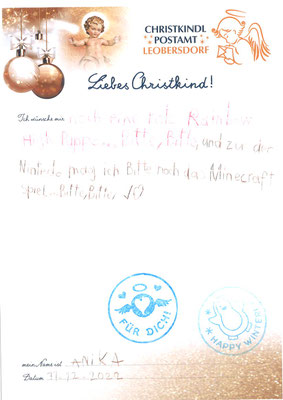 CHRISTKINDL
POSTAMT
LEOBERSDORF
Liebes Christkind!
Ich wünsche mir noch eine Rainbow
High Puppe, Bitte, Bitte, und zu der
Nintendo mag ich Bitte noch das Minecraft
Spiel, Bitte, Bitte,
FÜR DICH!
HAPPY WINTER!
mein Name ist ANIKA
Datum 11.12.2022